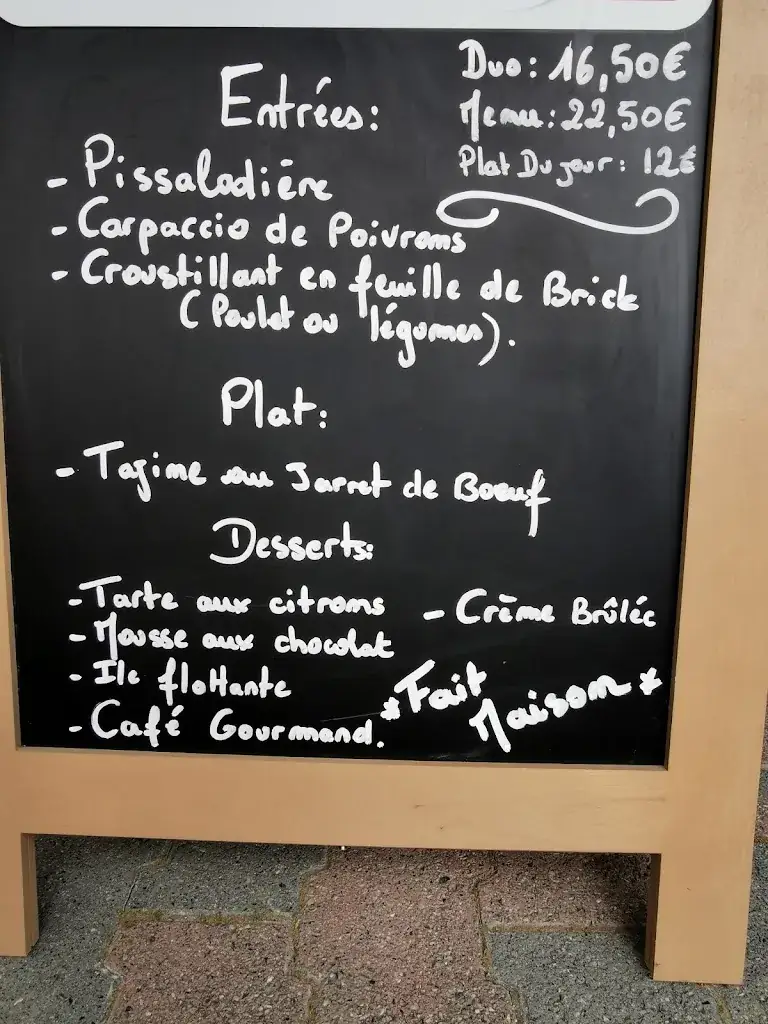 Duo: 16,50€
Menu: 22,50€
Plat Du jour: 12€
Entrées:
- Pissaladière
- Carpaccio de Poivrons
- Croustillant en feuille de Brick
(Poulet ou légumes).
Plat:
- Tajine au Jarret de Boeuf
Desserts:
- Tarte aux citrons
- Mousse aux chocolat
- Ile flottante
- Café Gourmand.
- Crème Brûlée
*Fait
Maison*